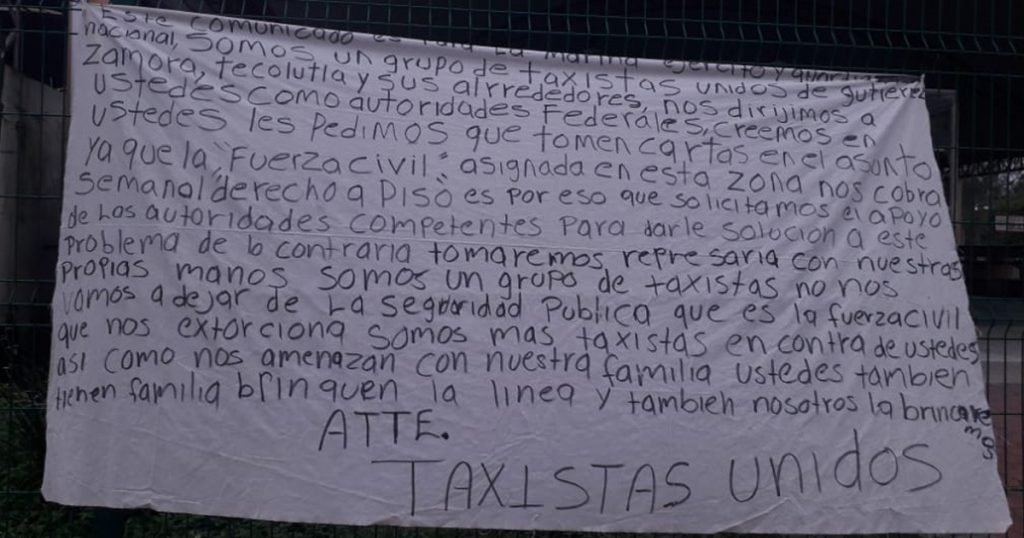 Este comunicado es para la marina ejercito y guardia
nacional, somos un grupo de taxistas unidos de gutierez
zamora, tecolutla y sus alrrededores, nos dirijimos a
ustedes como autoridades Federales, creemos en
ustedes les Pedimos que tomen cartas en el asonto
ya que la, "Fuerza civil". asignada en esta zona nos cobra
semanal derecho a piso es por eso que solicitamos el apoyo
de las autoridades competentes para darle solucion a este
problema de lo contraria tomaremos represaria con nuestras
propias manos somos un grupo de taxistas no nos
vamos a dejar de La seguridad Publica que es la fuerza civil
que nos extorciona somos mas taxistas en contra de ustedes
asi como nos amenazan con nuestra familia ustedes tambien
tienen familia brinquen la linea y tambien nosotros la brincaremos
ATTE.
TAXISTAS UNIDOS